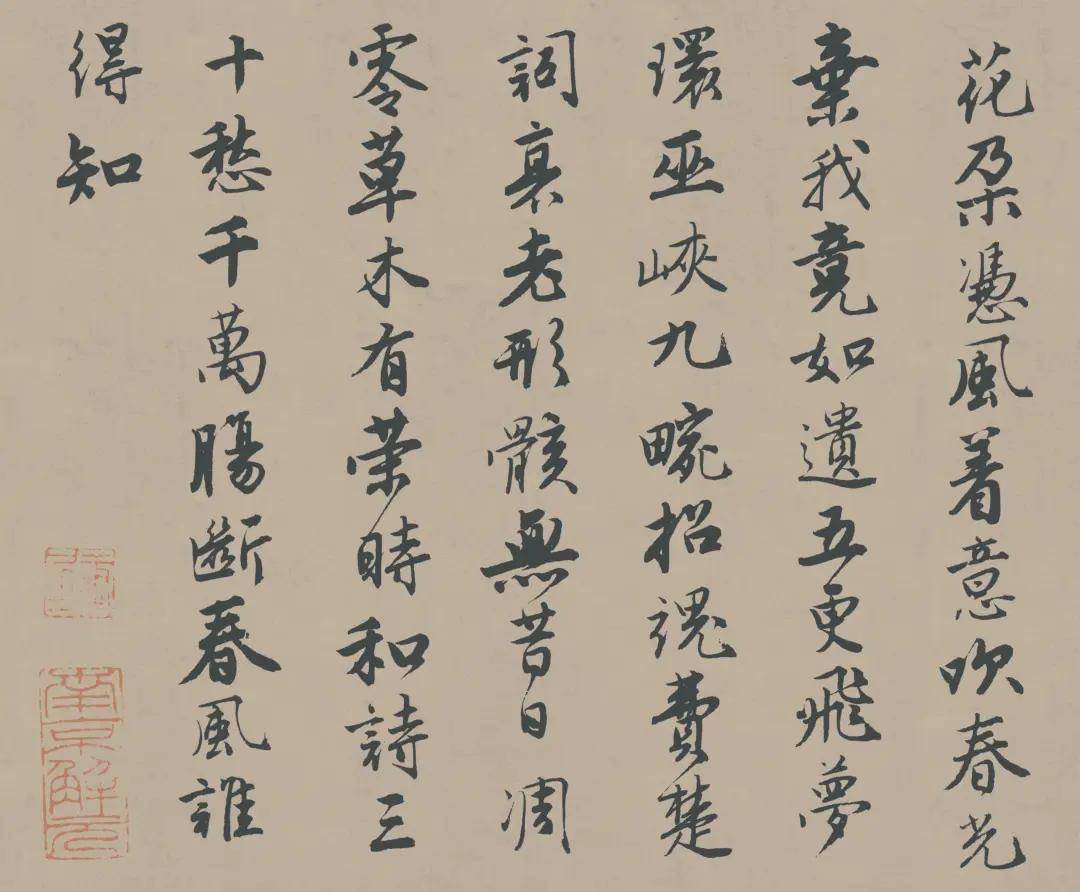 花朵憑風着意吹春光
棄我竟如遺五更飛夢
環巫峽九畹招魂費楚
詞衰老形骸無昔日凋
零草木有榮時和詩三
十愁千萬腸斷春風誰
得知
南京解元